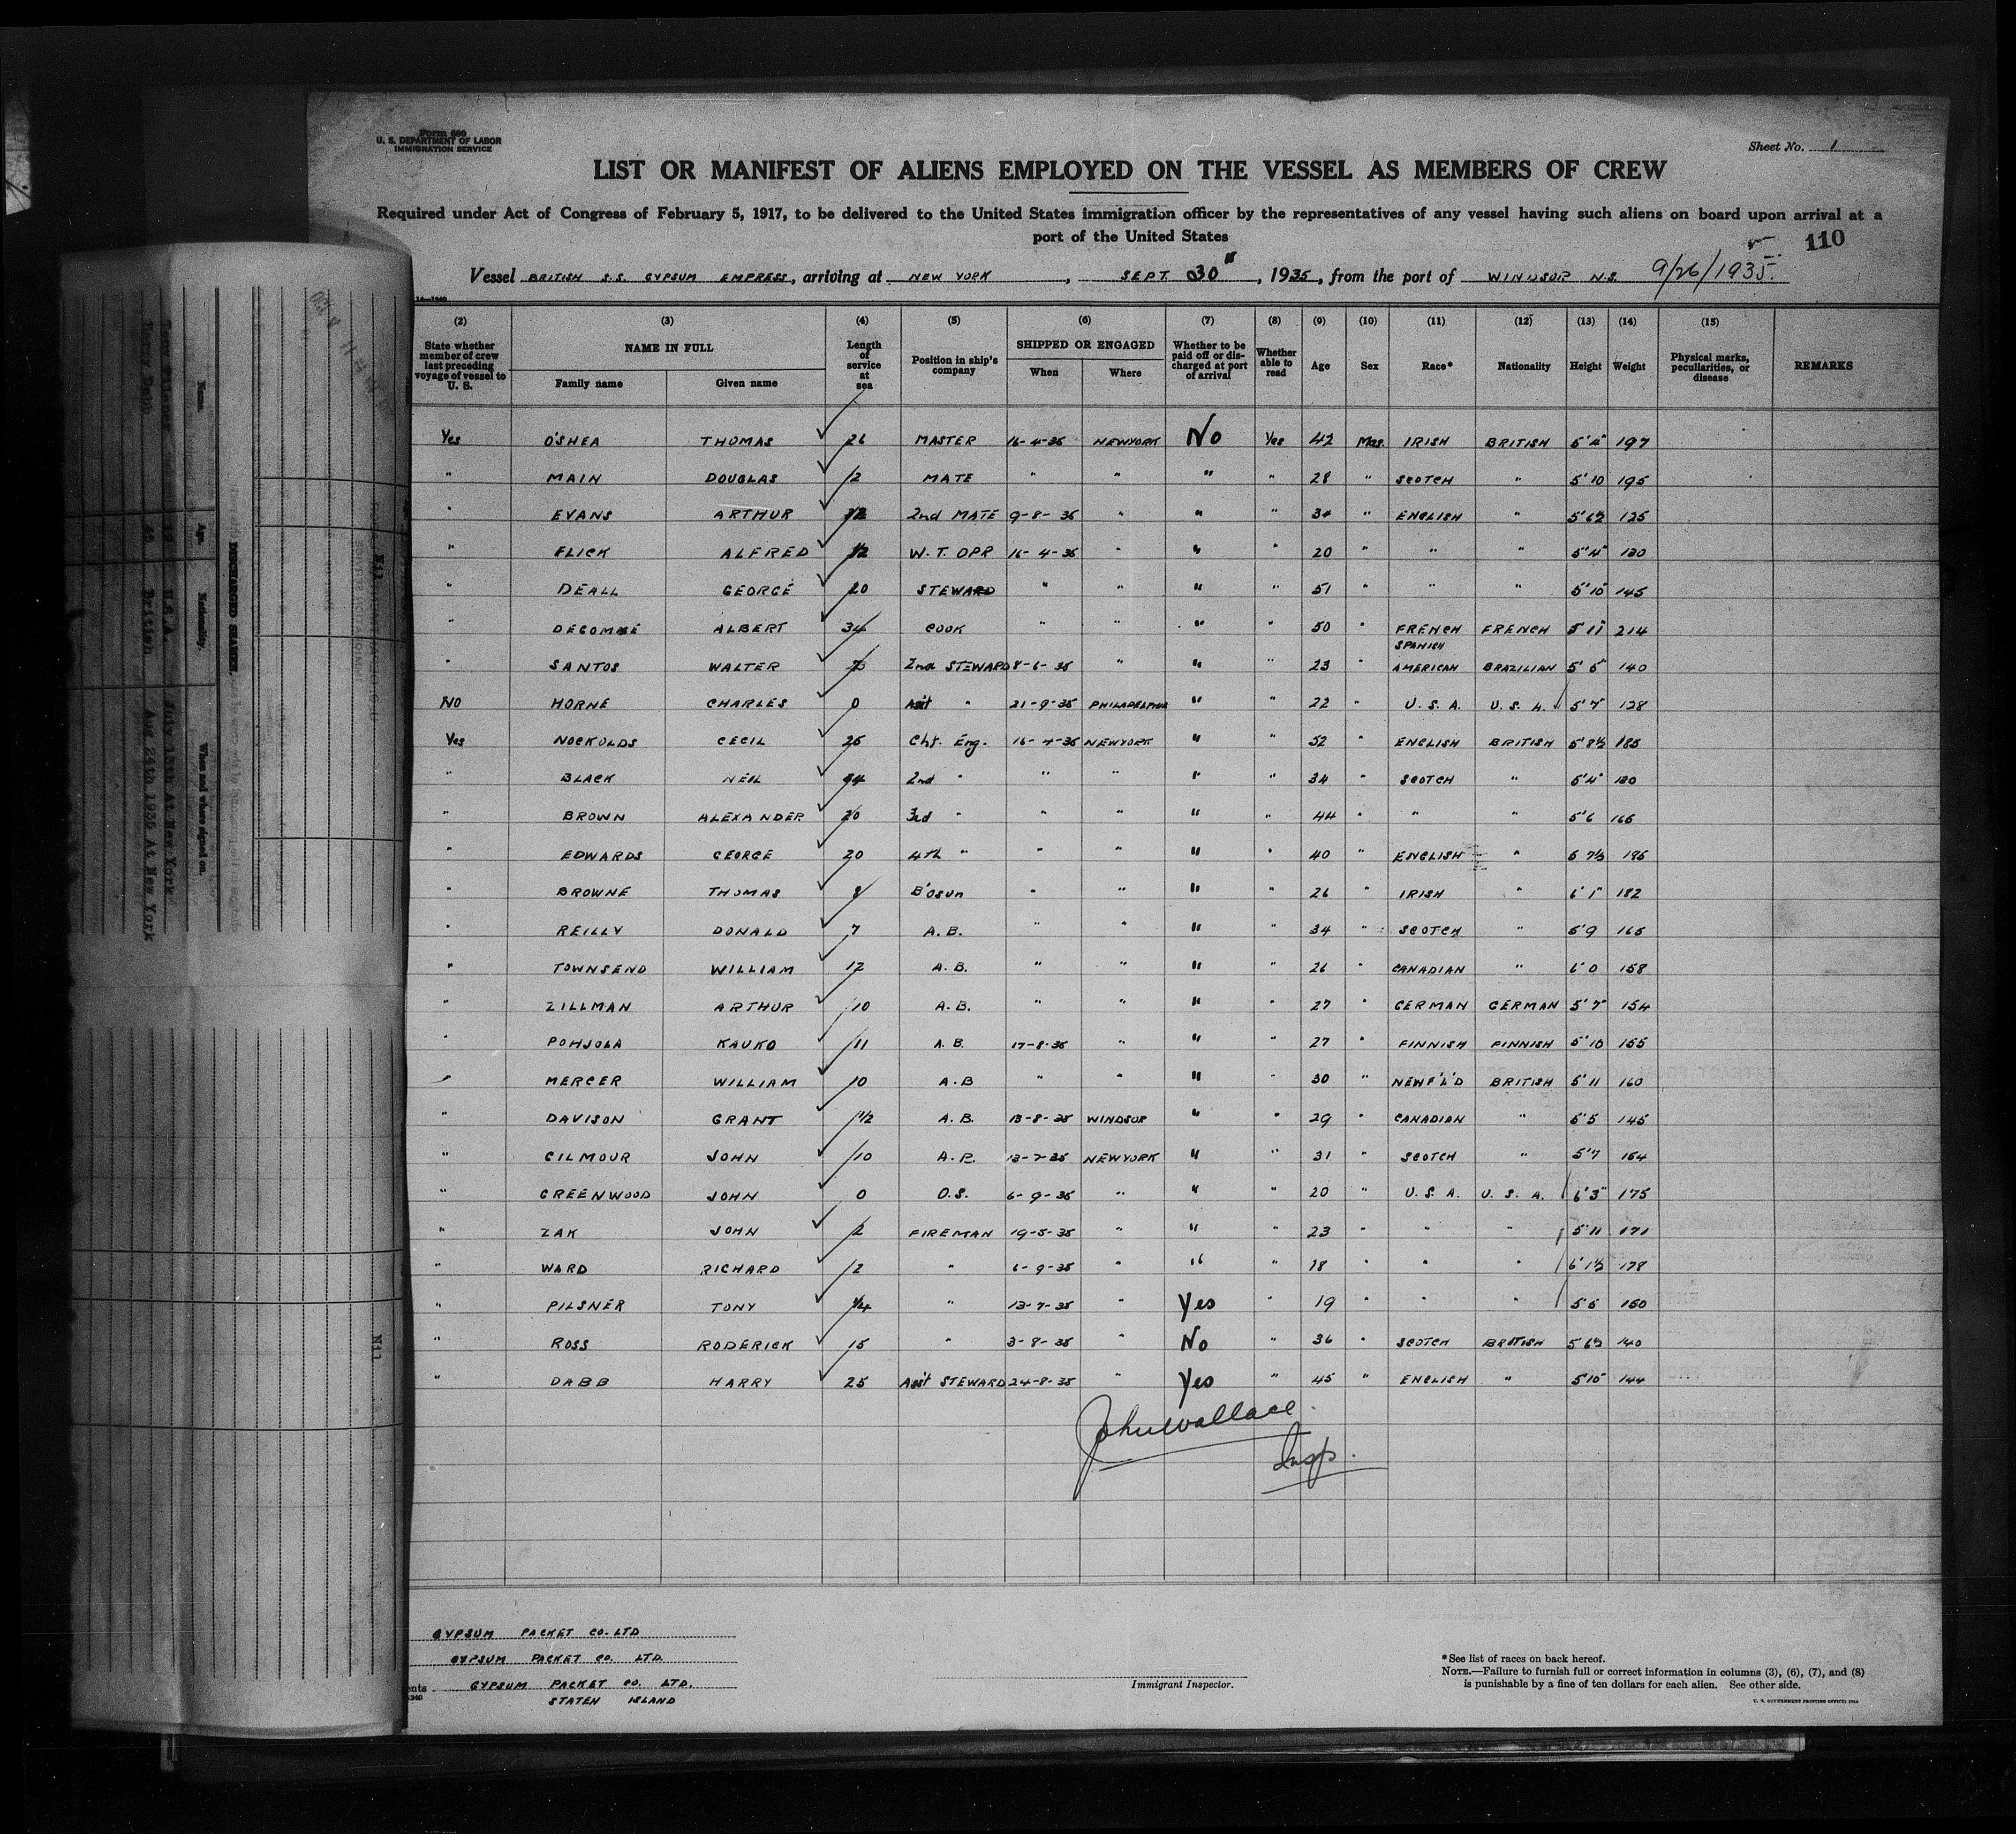 Form 680
U. S. DEPARTMENT OF LABOR
IMMIGRATION SERVICE
Sheet No. 1
LIST OR MANIFEST OF ALIENS EMPLOYED ON THE VESSEL AS MEMBERS OF CREW
Required under Act of Congress of February 5, 1917, to be delivered to the United States immigration officer by the representatives of any vessel having such aliens on board upon arrival at a
port of the United States
110
Vessel BRITISH S.S. GYPSUM EMPRESS, arriving at NEW YORK, SEPT. 30, 1935, from the port of WINDSOR N.S. 9/26/1935.
(2) (3) (4) (5) (6) (7) (8) (9) (10) (11) (12) (13) (14) (15)
State whether member of crew last preceding voyage of vessel to U. S. NAME IN FULL Family name Given name Length of service at sea Position in ship's company SHIPPED OR ENGAGED When Where Whether to be paid off or discharged at port of arrival Whether able to read Age Sex Race* Nationality Height Weight Physical marks, peculiarities, or disease REMARKS
Yes O'SHEA THOMAS 26 MASTER 16-4-35 NEWYORK No Yes 42 Mas. IRISH BRITISH 5'4" 197
" MAIN DOUGLAS 12 MATE " " " " 28 " SCOTCH " 5'10 195
" EVANS ARTHUR 2nd MATE 9-8-35 " " " 34 " ENGLISH " 5'6½ 125
" FLICK ALFRED 1/2 W.T. OPR 16-4-35 " " " 20 " " " 5'4" 130
" DEALL GEORGE 20 STEWARD " " " " 51 " " " 5'10 145
" DECOMBE ALBERT 34 COOK " " " " 50 " FRENCH FRENCH 5'11 214
" SANTOS WALTER 2nd STEWARD 8-6-35 " " " 23 " SPANISH AMERICAN BRAZILIAN 5'5" 140
NO HORNE CHARLES 0 Asst " 21-9-35 PHILADELPHIA " " 22 " U.S.A. U.S.A. 5'7" 128
Yes NOCKOLDS CECIL 25 Chf. Eng. 16-4-35 NEWYORK " " 52 " ENGLISH BRITISH 5'8½ 185
" BLACK NEIL 14 2nd " " " " " 34 " SCOTCH " 5'4" 130
" BROWN ALEXANDER 20 3rd " " " " " 44 " " " 5'6 165
" EDWARDS GEORGE 20 4th " " " " " 40 " ENGLISH " 5 7½ 195
" BROWNE THOMAS 8 B'osun " " " " 26 " IRISH " 6'1" 182
" REILLY DONALD 7 A.B. " " " " 34 " SCOTCH " 5'9 165
" TOWNSEND WILLIAM 12 A.B. " " " " 26 " CANADIAN " 6'0 158
" ZILLMAN ARTHUR 10 A.B. " " " " 27 " GERMAN GERMAN 5'7" 154
" POHJOLA KAUKO 11 A.B. 17-8-35 " " " 27 " FINNISH FINNISH 5'10 155
" MERCER WILLIAM 10 A.B " " " " 30 " NEWF'L'D BRITISH 5'11 160
" DAVISON GRANT 1/2 A.B. 13-8-35 WINDSOR " " 29 " CANADIAN " 5'5 145
" GILMOUR JOHN 10 A.B. 13-7-35 NEWYORK " " 31 " SCOTCH " 5'7 154
" GREENWOOD JOHN 0 O.S. 6-9-35 " " " 20 " U.S.A. U.S.A. 6'3" 175
" ZAK JOHN 2 FIREMAN 19-5-35 " " " 23 " " " 5'11 171
" WARD RICHARD 2 " 6-9-35 " " " 18 " " " 6'1½ 178
" PILSNER TONY 1/4 " 13-7-35 " Yes " 19 " " " 5'5 150
" ROSS RODERICK 15 " 3-8-35 " No " 36 " SCOTCH BRITISH 5 6½ 140
" DABB HARRY 25 Asst STEWARD 24-8-35 " Yes " 45 " ENGLISH " 5'10" 144
John Wallace
Insp.
GYPSUM PACKET CO. LTD
GYPSUM PACKET CO. LTD.
GYPSUM PACKET CO. LTD.
STATEN ISLAND
Immigrant Inspector.
*See list of races on back hereof.
NOTE.—Failure to furnish full or correct information in columns (3), (6), (7), and (8)
is punishable by a fine of ten dollars for each alien. See other side.
U. S. GOVERNMENT PRINTING OFFICE
DISCHARGED SEAMEN.
Name. Age. Nationality. When and where signed on.
19 U.S.A. July 13th At New York
Harry Dabb 45 British Aug 24th 1935 At New York
Nil
Nil